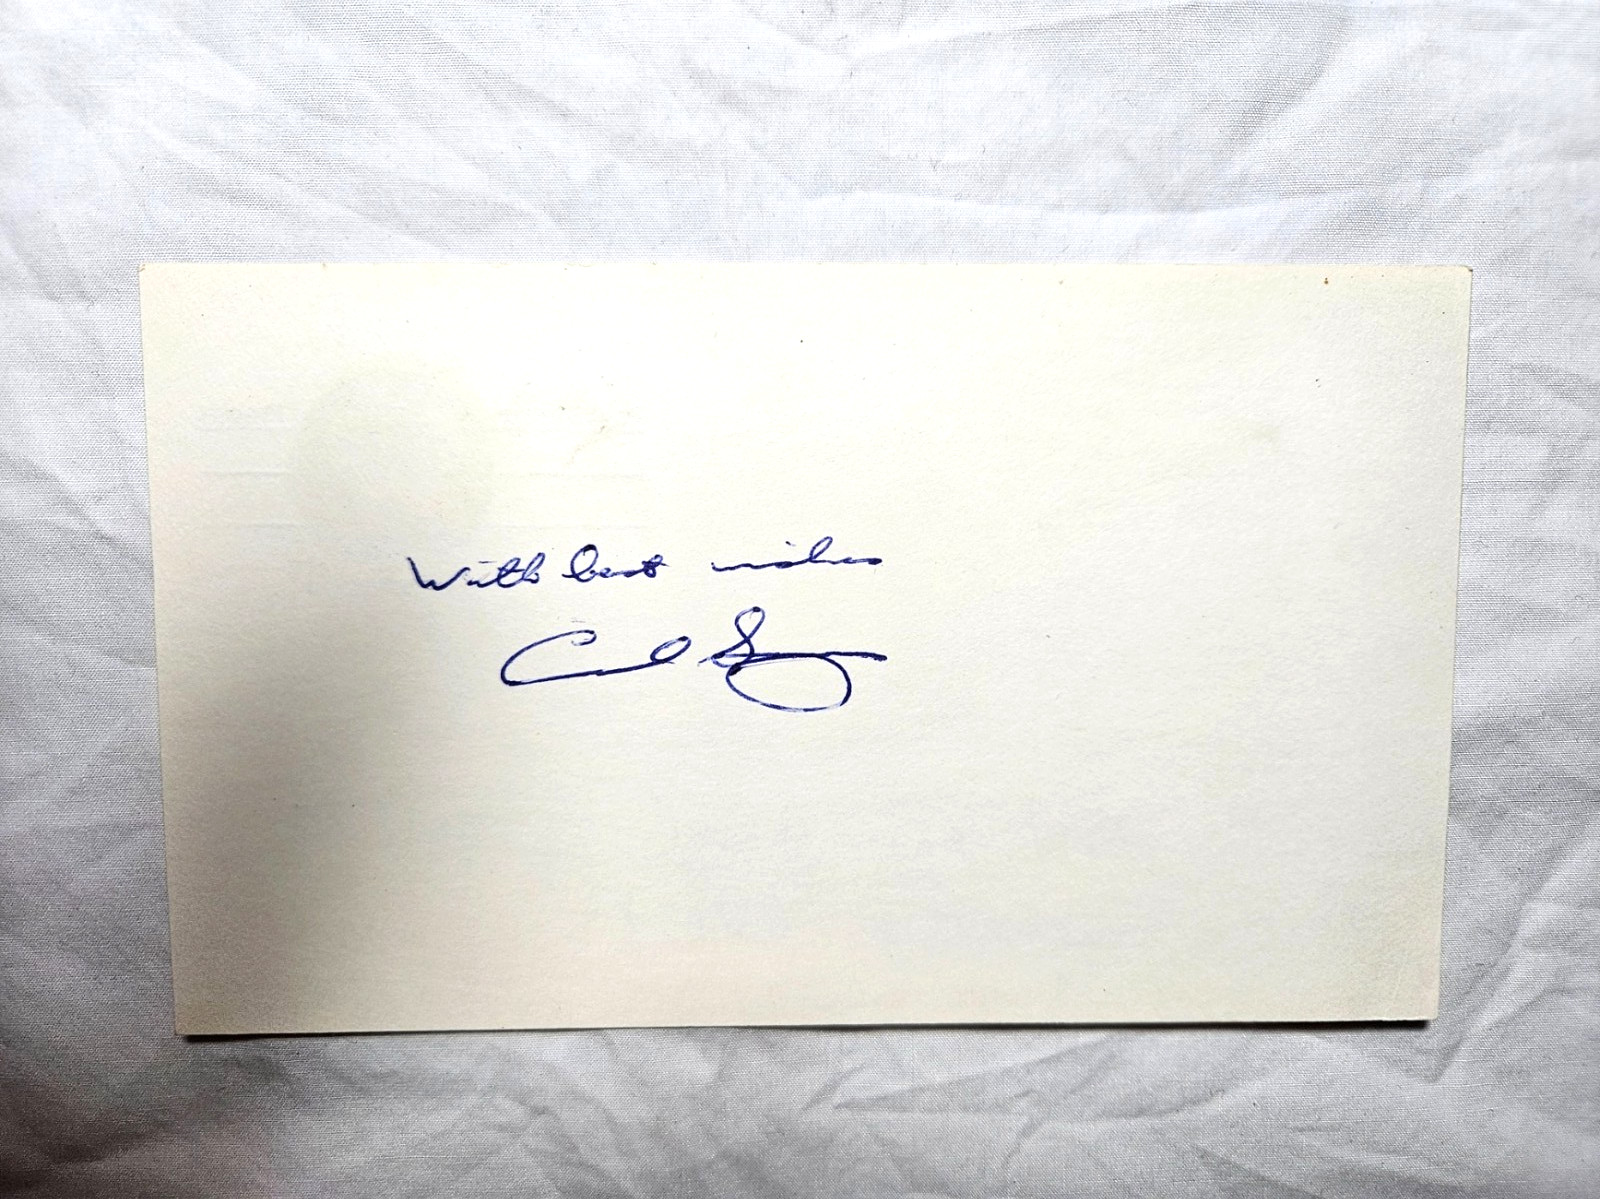 With best wishes
Carl